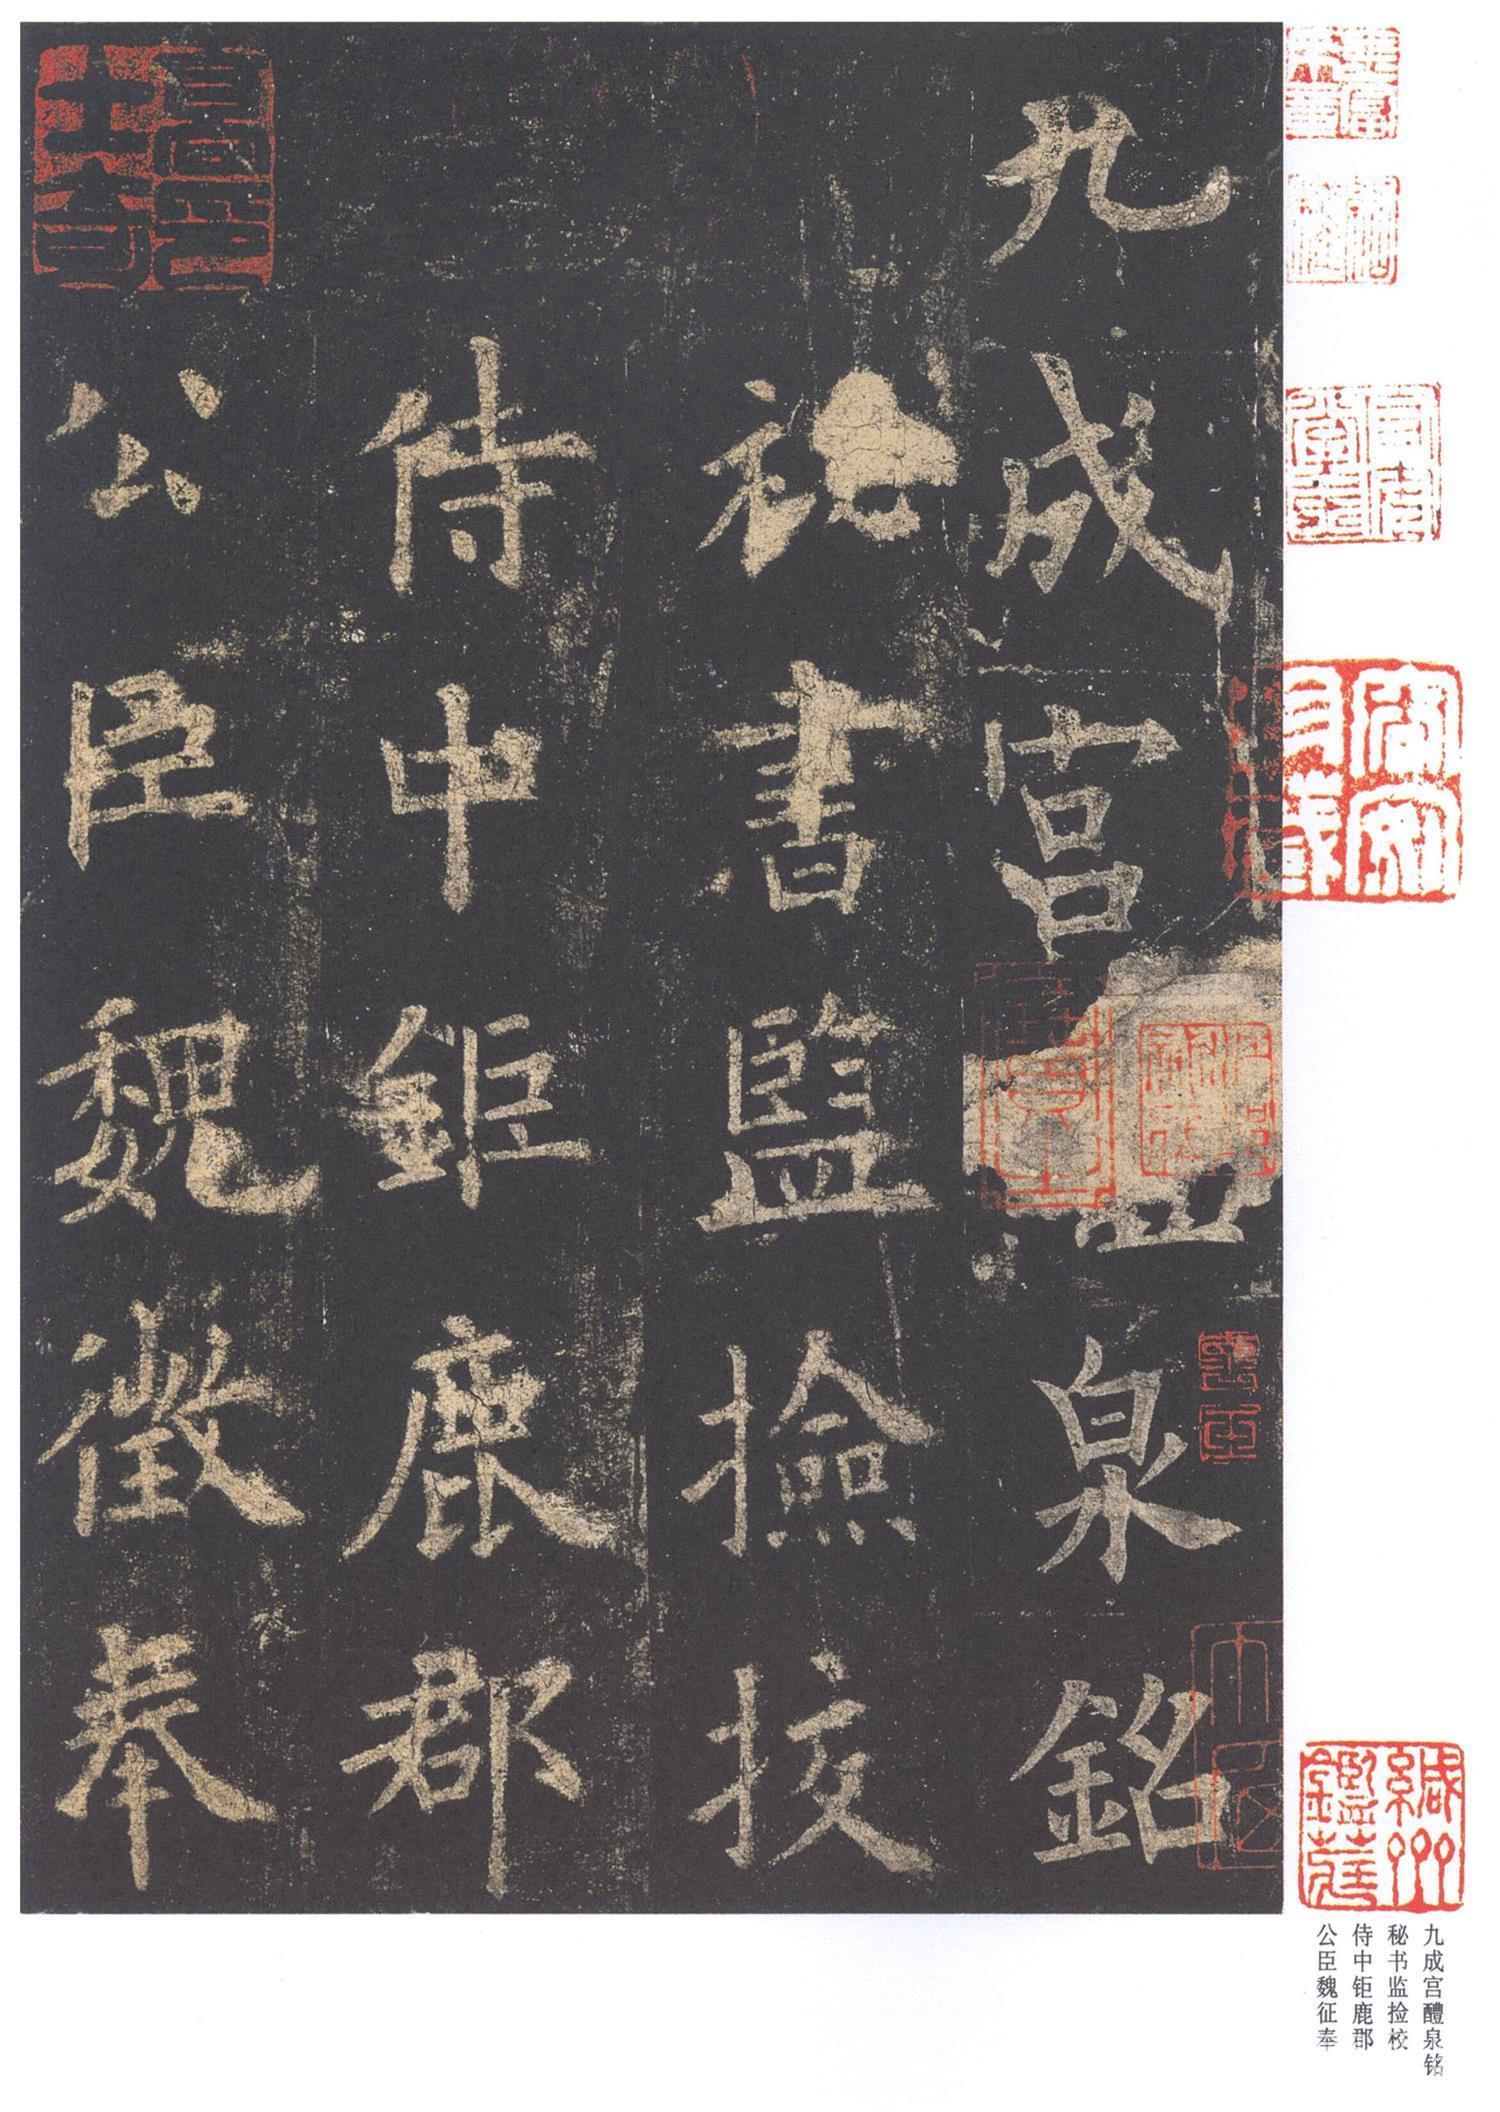 九成宮醴泉銘
祕書監撿挍
侍中鉅鹿郡
公臣魏徵奉
緘州鑑藏
九成宫醴泉铭
秘书监捡校
侍中钜鹿郡
公臣魏征奉